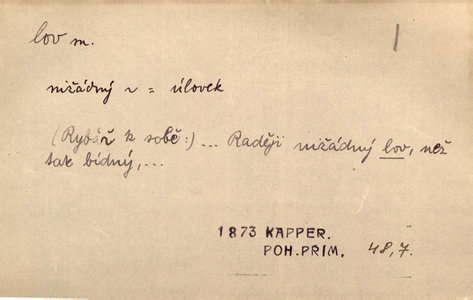 lov m.
nižádný ~ = úlovek
(Rybář k sobě:) ... Raději nižádný lov, než
tak bídný,...
1873 KAPPER.
POH.PRIM. 48,7.